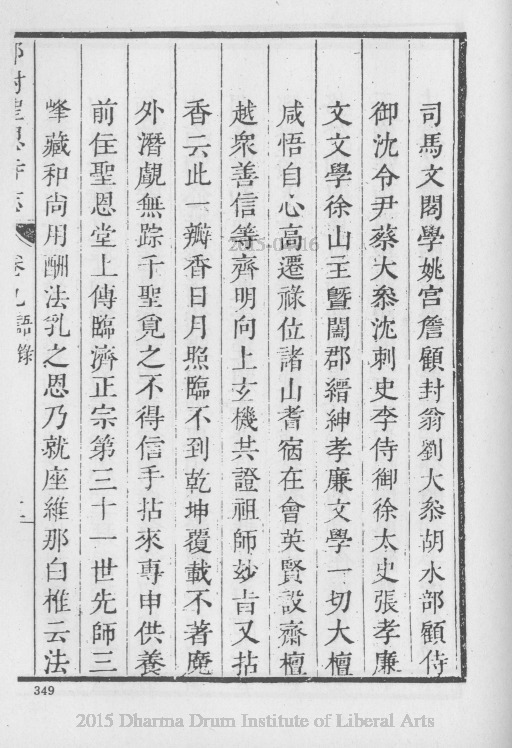 司馬文閣學姚宮詹顧封翁劉大叅胡水部顧侍
御沈令尹蔡大叅沈刺史李侍御徐太史張孝廉
文文學徐山主曁闔郡縉紳孝廉文學一切大檀
咸悟自心高遷祿位諸山耆宿在會英賢設齋檀
越衆善信等齊明向上玄機共證祖師妙旨又拈
香云此一瓣香日月照臨不到乾坤覆載不著魔
外潛覷無踪千聖覓之不得信手拈來專申供養
前住聖恩堂上傳臨濟正宗第三十一世先師三
峰藏和尚用酬法乳之恩乃就座維那白椎云法
卷九 語錄
349
2015 Dharma Drum Institute of Liberal Arts